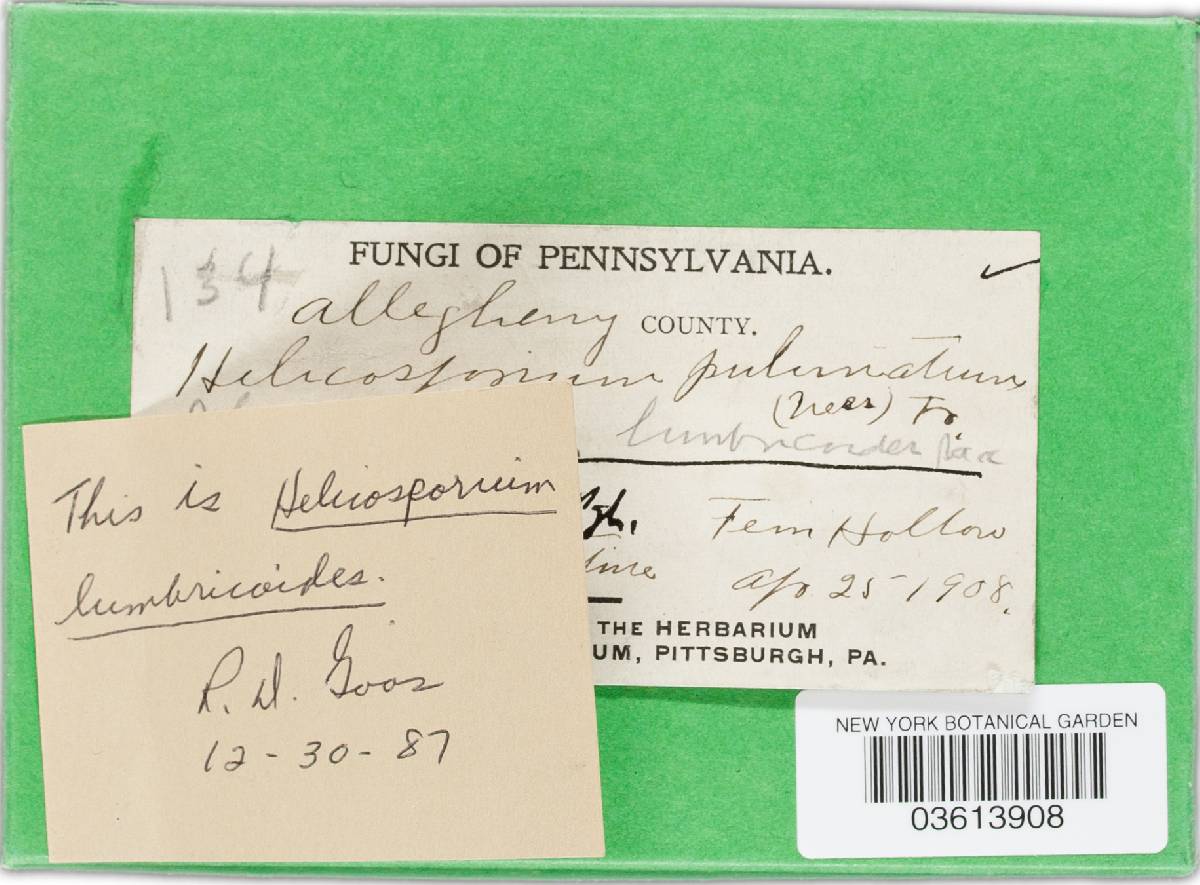 134
FUNGI OF PENNSYLVANIA.
Allegheny COUNTY.
Helicosporium pulvinatum
(Nees) Fr.
lumbricoides
gh. Fern Hollow
Apr 25-1908.
THE HERBARIUM
UM, PITTSBURGH, PA.
This is Helicosporium
lumbricoides.
R. D. Goos
12-30-87
NEW YORK BOTANICAL GARDEN
03613908